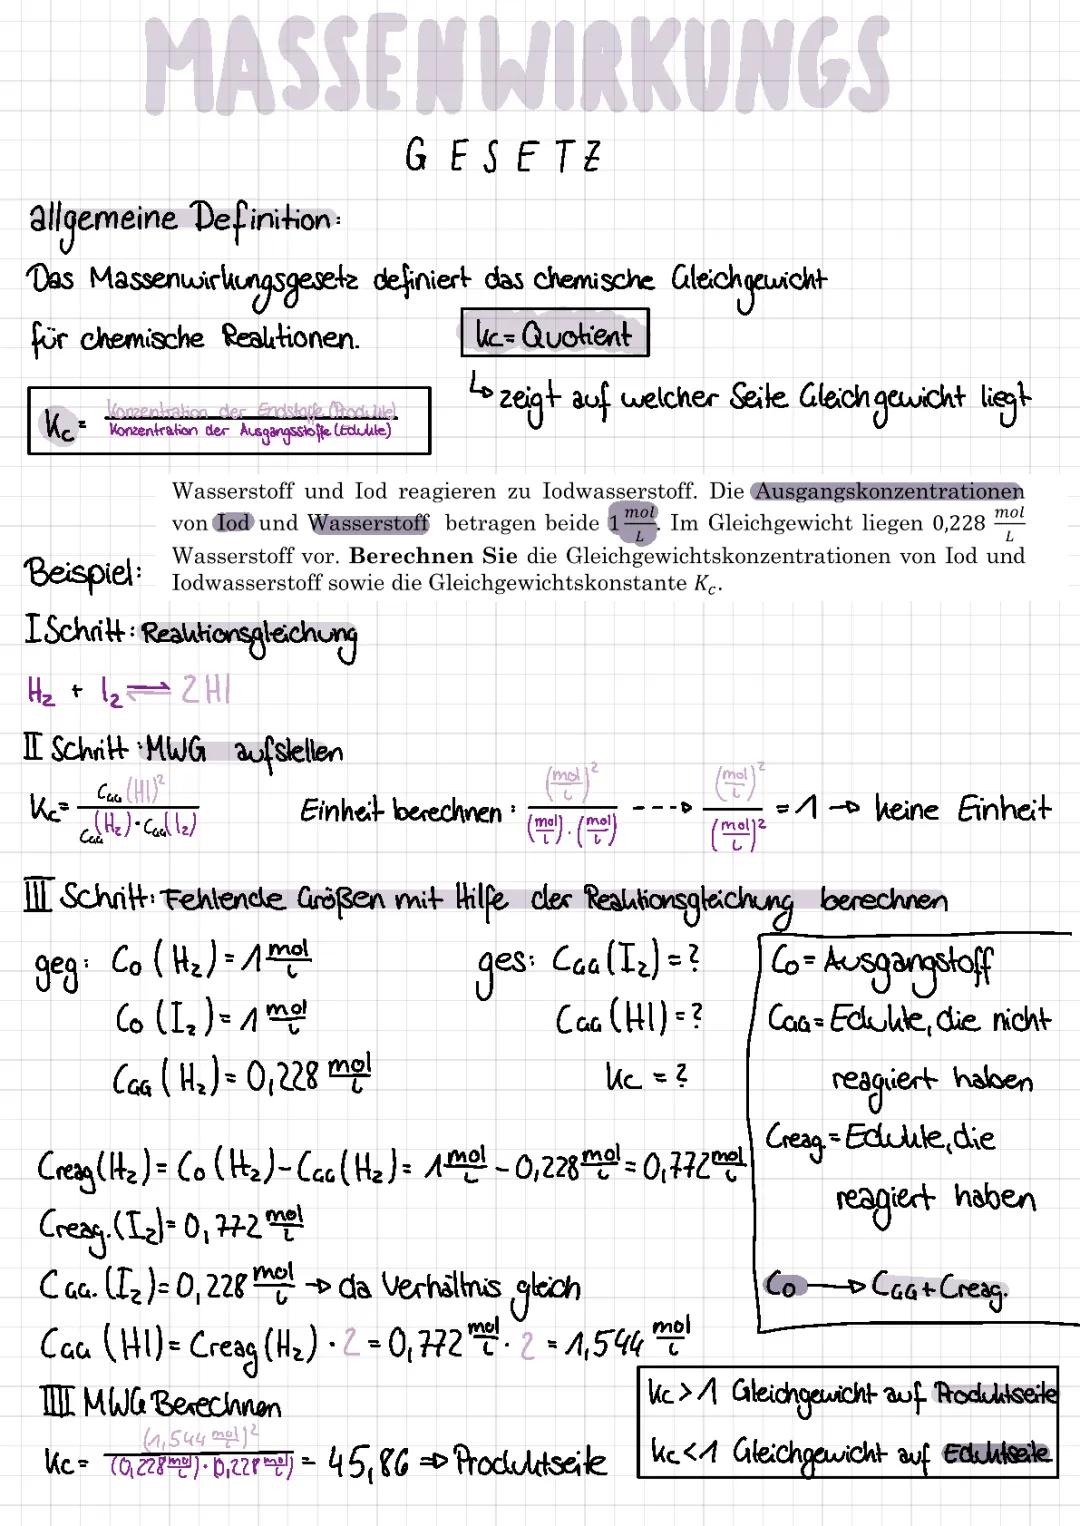 MASSENWIRKUNGS
GESETZ
allgemeine Definition:
Das Massenwirkungsgesetz definiert das chemische Gleichgewicht
für chemische Reaktionen.
Kc = Quotient
↳ zeigt auf welcher Seite Gleichgewicht liegt
Kc = Konzentration der Endstoffe (Produkte) / Konzentration der Ausgangsstoffe (Edukte)
Wasserstoff und Iod reagieren zu Iodwasserstoff. Die Ausgangskonzentrationen
von Iod und Wasserstoff betragen beide 1 mol/L. Im Gleichgewicht liegen 0,228 mol/L
Wasserstoff vor. Berechnen Sie die Gleichgewichtskonzentrationen von Iod und
Iodwasserstoff sowie die Gleichgewichtskonstante Kc.
Beispiel:
I Schritt: Reaktionsgleichung
H₂ + I₂ ⇌ 2HI
II Schritt: MWG aufstellen
Kc = CGG(HI)² / CGG(H₂)·CGG(I₂)
Einheit berechnen: (mol/L)² / (mol/L)·(mol/L) ---> (mol/L)² / (mol/L)² = 1 → keine Einheit
III Schritt: Fehlende Größen mit Hilfe der Reaktionsgleichung berechnen
geg: C₀(H₂) = 1 mol/L
C₀(I₂) = 1 mol/L
CGG(H₂) = 0,228 mol/L
ges: CGG(I₂) = ?
CGG(HI) = ?
Kc = ?
C₀ = Ausgangstoff
CGG = Edukte, die nicht
reagiert haben
Creag = Edukte, die
reagiert haben
C₀ → CGG + Creag.
Creag(H₂) = C₀(H₂) - CGG(H₂) = 1 mol/L - 0,228 mol/L = 0,772 mol/L
Creag.(I₂) = 0,772 mol/L
CGG.(I₂) = 0,228 mol/L → da Verhältnis gleich
CGG(HI) = Creag(H₂) · 2 = 0,772 mol/L · 2 = 1,544 mol/L
IIII MWG Berechnen
Kc = (1,544 mol/L)² / (0,228 mol/L)·(0,228 mol/L) = 45,86 ⇒ Produktseite
Kc > 1 Gleichgewicht auf Produktseite
Kc < 1 Gleichgewicht auf Eduktseite